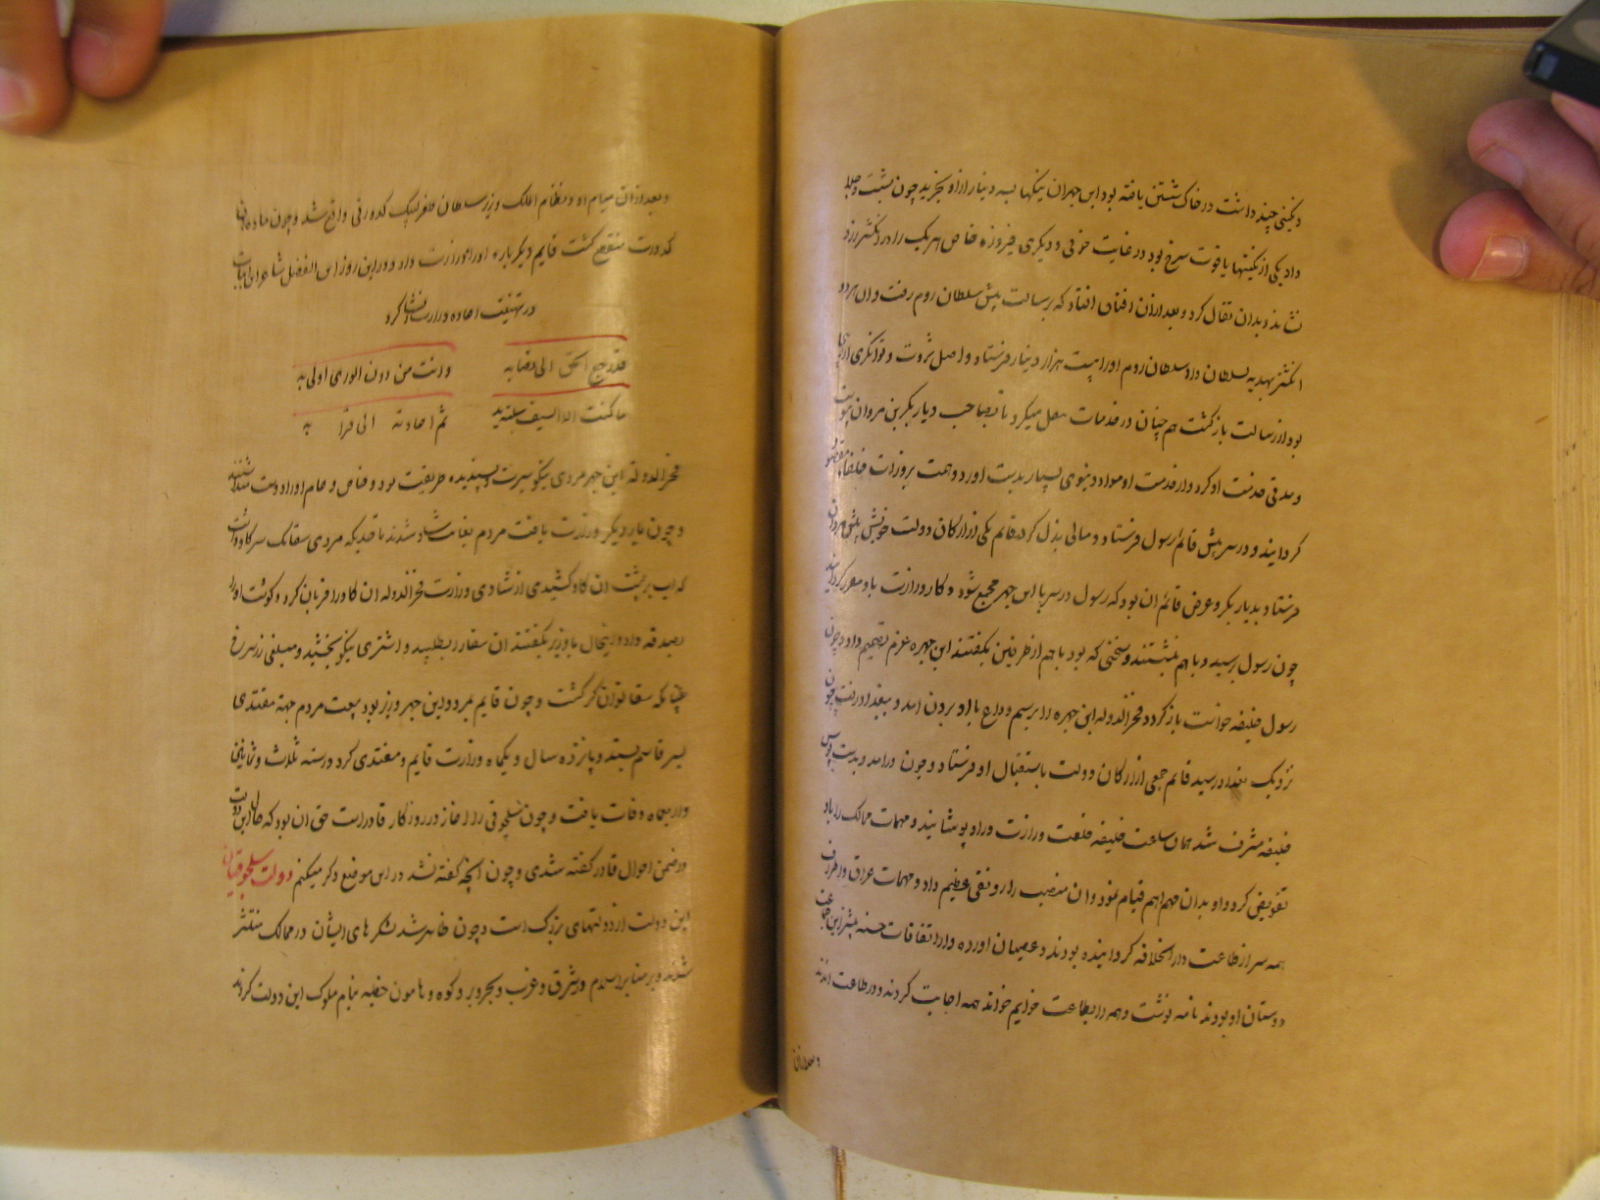 و نگینی چند داشت در خاک شستن یافته بود ابن جهیر ان نگینها بسه دینار از او بخرید چون بشست و جلا
داد یکی از نگینها یاقوت سرخ بود در غایت خوبی و دیگری فیروزه خاص هر یک را در انگشتر زر
نشاند و بدان تفال کرد و بعد ازان اتفاق افتاد که برسالت پیش سلطان روم رفت و ان هر دو
انگشتر بهدیه بسلطان داد سلطان روم او را بیست هزار دینار فرستاد و اصل ثروت و توانگری او ازین
بود از رسالت بازگشت هم چنان در خدمات عمل میکرد تا بصاحب دیار بکر بن مروان پیوست
و مدتی خدمت او کرد و از خدمت او مواد دنیوی بسیار بدست اورد و همت بر وزارت خلفا مقصور
گردانید و در سر پیش قائم رسول فرستاد و مالی بذل کرد قائم یکی از ارکان دولت خویش پیش مروان
فرستاد بدیار بکر و غرض قائم ان بود که رسول در سر با ابن جهیر مجتمع شود و کار وزارت با او مقرر گرداند
چون رسول برسید و با هم بنشستند و سخنی که بود با هم از طرفین بگفتند ابن جهیر عزم تصمیم داد و چون
رسول خلیفه خواست باز گردد فخر الدوله ابن جهیر را برسم وداع با او بیرون امد و ببغداد رفت چون
نزدیک بغداد رسید قائم جمعی از ارکان دولت باستقبال او فرستاد و چون درامد و بدست بوس
خلیفه مشرف شد همان ساعت خلیفه خلعت وزارت در او پوشانید و مهمات ممالک را باو
تفویض کرد و او بدان مهم اهم قیام نمود و ان منصب را رونقی عظیم داد و مهمات عراق و اطراف
همه سر از طاعت دار الخلافه گردانیده بودند و عصیان اورده و از اتفاقات حسنه بیشتر این جماعت
دوستان او بودند نامه نوشت و همه را بطاعت خوانیم خواند همه اجابت کردند و در طاعت امدند
و بعد ازان
و بعد ازان میان او و نظام الملک وزیر سلطان طغرلبک کدورتی واقع شد و چون ماده ان
کدورت منقطع گشت قایم دیگر باره او را وزارت داد و در این روز ابن الفضل شاعر این ابیات
در تهنیت اعاده وزارت انشا کرد
قد رجع الحق الی نصابه وانت من دون الوری اولی به
ما کنت الا السیف سلته ید ثم اعادته الی قرابه
فخر الدوله ابن جهیر مردی نیکو سیرت و پسندیده طریقت بود و خاص و عام او را دوست داشتند
و چون بار دیگر وزارت یافت مردم بغایت شاد شدند تا بحدیکه مردی سقا یک سر گاو داشت
که اب بر پشت ان گاو کشیدی از شادی وزارت فخر الدوله ان گاو را قربان کرد و گوشت او را
بصدقه داد و این حال با وزیر بگفتند ان سقا را بطلبید و اشتری نیکو بخشید و مبلغی زر سرخ
چنانکه سقا توانگر گشت و چون قایم مرد و ابن جهیر وزیر بود بیعت مردم جهة مقتدی
پسر قاسم بستد و پانزده سال و یکماه وزارت قایم و مقتدی کرد و در سنه ثلاث و ثمانین
و اربعمایه وفات یافت و چون سلجوقی را اغاز در روزگار قادر است حق ان بود که حال این دولت
در ضمن احوال قادر گفته شدی و چون انچه گفته نشد در این موضع ذکر میکنم دولت سلجوقیان
این دولت از دولتهای بزرگ است و چون ظاهر شد لشکرهای ایشان در ممالک منتشر
شدند و بر منابر اسلام در شرق و غرب و بحر و بر و کوه و هامون خطبه بنام ملوک این دولت کردند